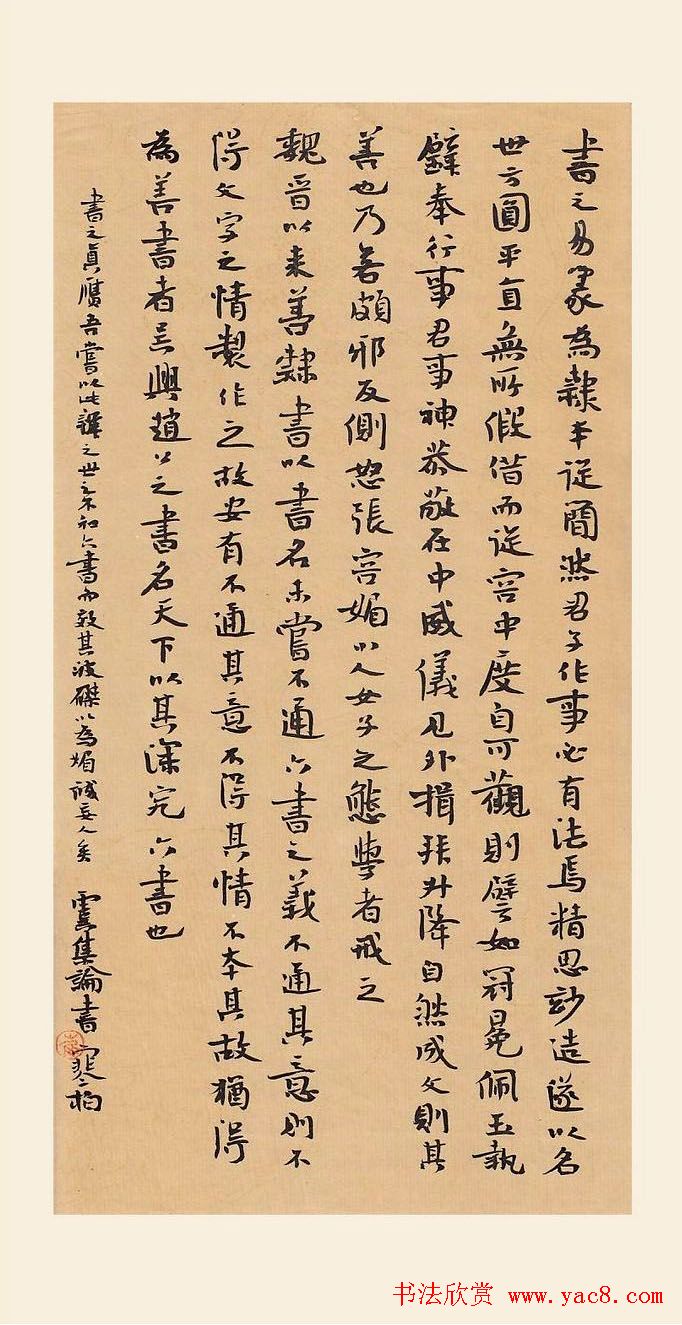 書之易篆為隸本從簡然君子作事必有法焉精思妙造遂以名
世方圓平直無所假借而從容中度自可觀則譬如冠冕佩玉執
璧奉行事君事神恭敬在中威儀見外揖拜升降自然成文則其
善也乃若頗邪反側怒張容媚小人女子之態學者戒之
魏晉以來善隸書以書名未嘗不通六書之義不通其意則不
得文字之情製作之故安有不通其意不得其情不本其故猶得
為善書者吳興趙公之書名天下以其深究六書也
書之真贗吾嘗以此辨之世之不知六書而效其波磔以為媚誠妄人矣 虞集論書
书法欣赏 www.yac8.com